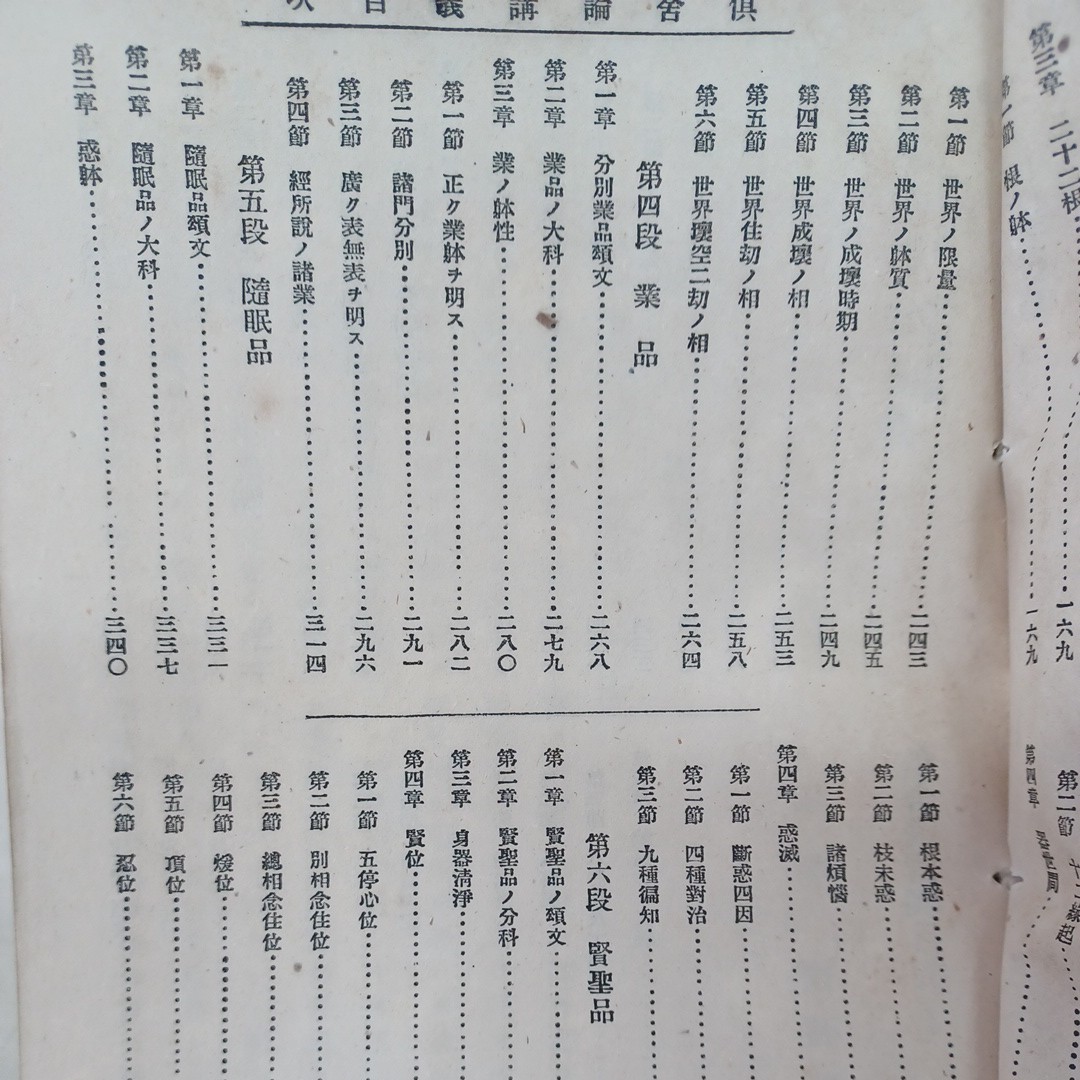 俱舍論講義目次
第三章 二十二根
一六九
根ノ躰
一六九
第一節 世界ノ限量 二四三
第二節 世界ノ躰質 二四五
第三節 世界ノ成壞時期 二四九
第四節 世界成壞ノ相 二五三
第五節 世界住劫ノ相 二五八
第六節 世界壞空二劫ノ相 二六四
第四段 業品
第一章 分別業品頌文 二六八
第二章 業品ノ大科 二七九
第三章 業ノ躰性 二八〇
第一節 正ク業躰ヲ明ス 二八二
第二節 諸門分別 二九一
第三節 廣ク表無表ヲ明ス 二九六
第四節 經所說ノ諸業 三一四
第五段 隨眠品
第一章 隨眠品頌文 三三一
第二章 隨眠品ノ大科 三三七
第三章 惑躰 三四〇
第二節 十二緣起
第四章 器世間
第一節 根本惑
第二節 枝末惑
第三節 諸煩惱
第四章 惑滅
第一節 斷惑四因
第二節 四種對治
第三節 九種徧知
第六段 賢聖品
第一章 賢聖品ノ頌文
第二章 賢聖品ノ分科
第三章 身器清淨
第四章 賢位
第一節 五停心位
第二節 別相念住位
第三節 總相念住位
第四節 煖位
第五節 頂位
第六節 忍位